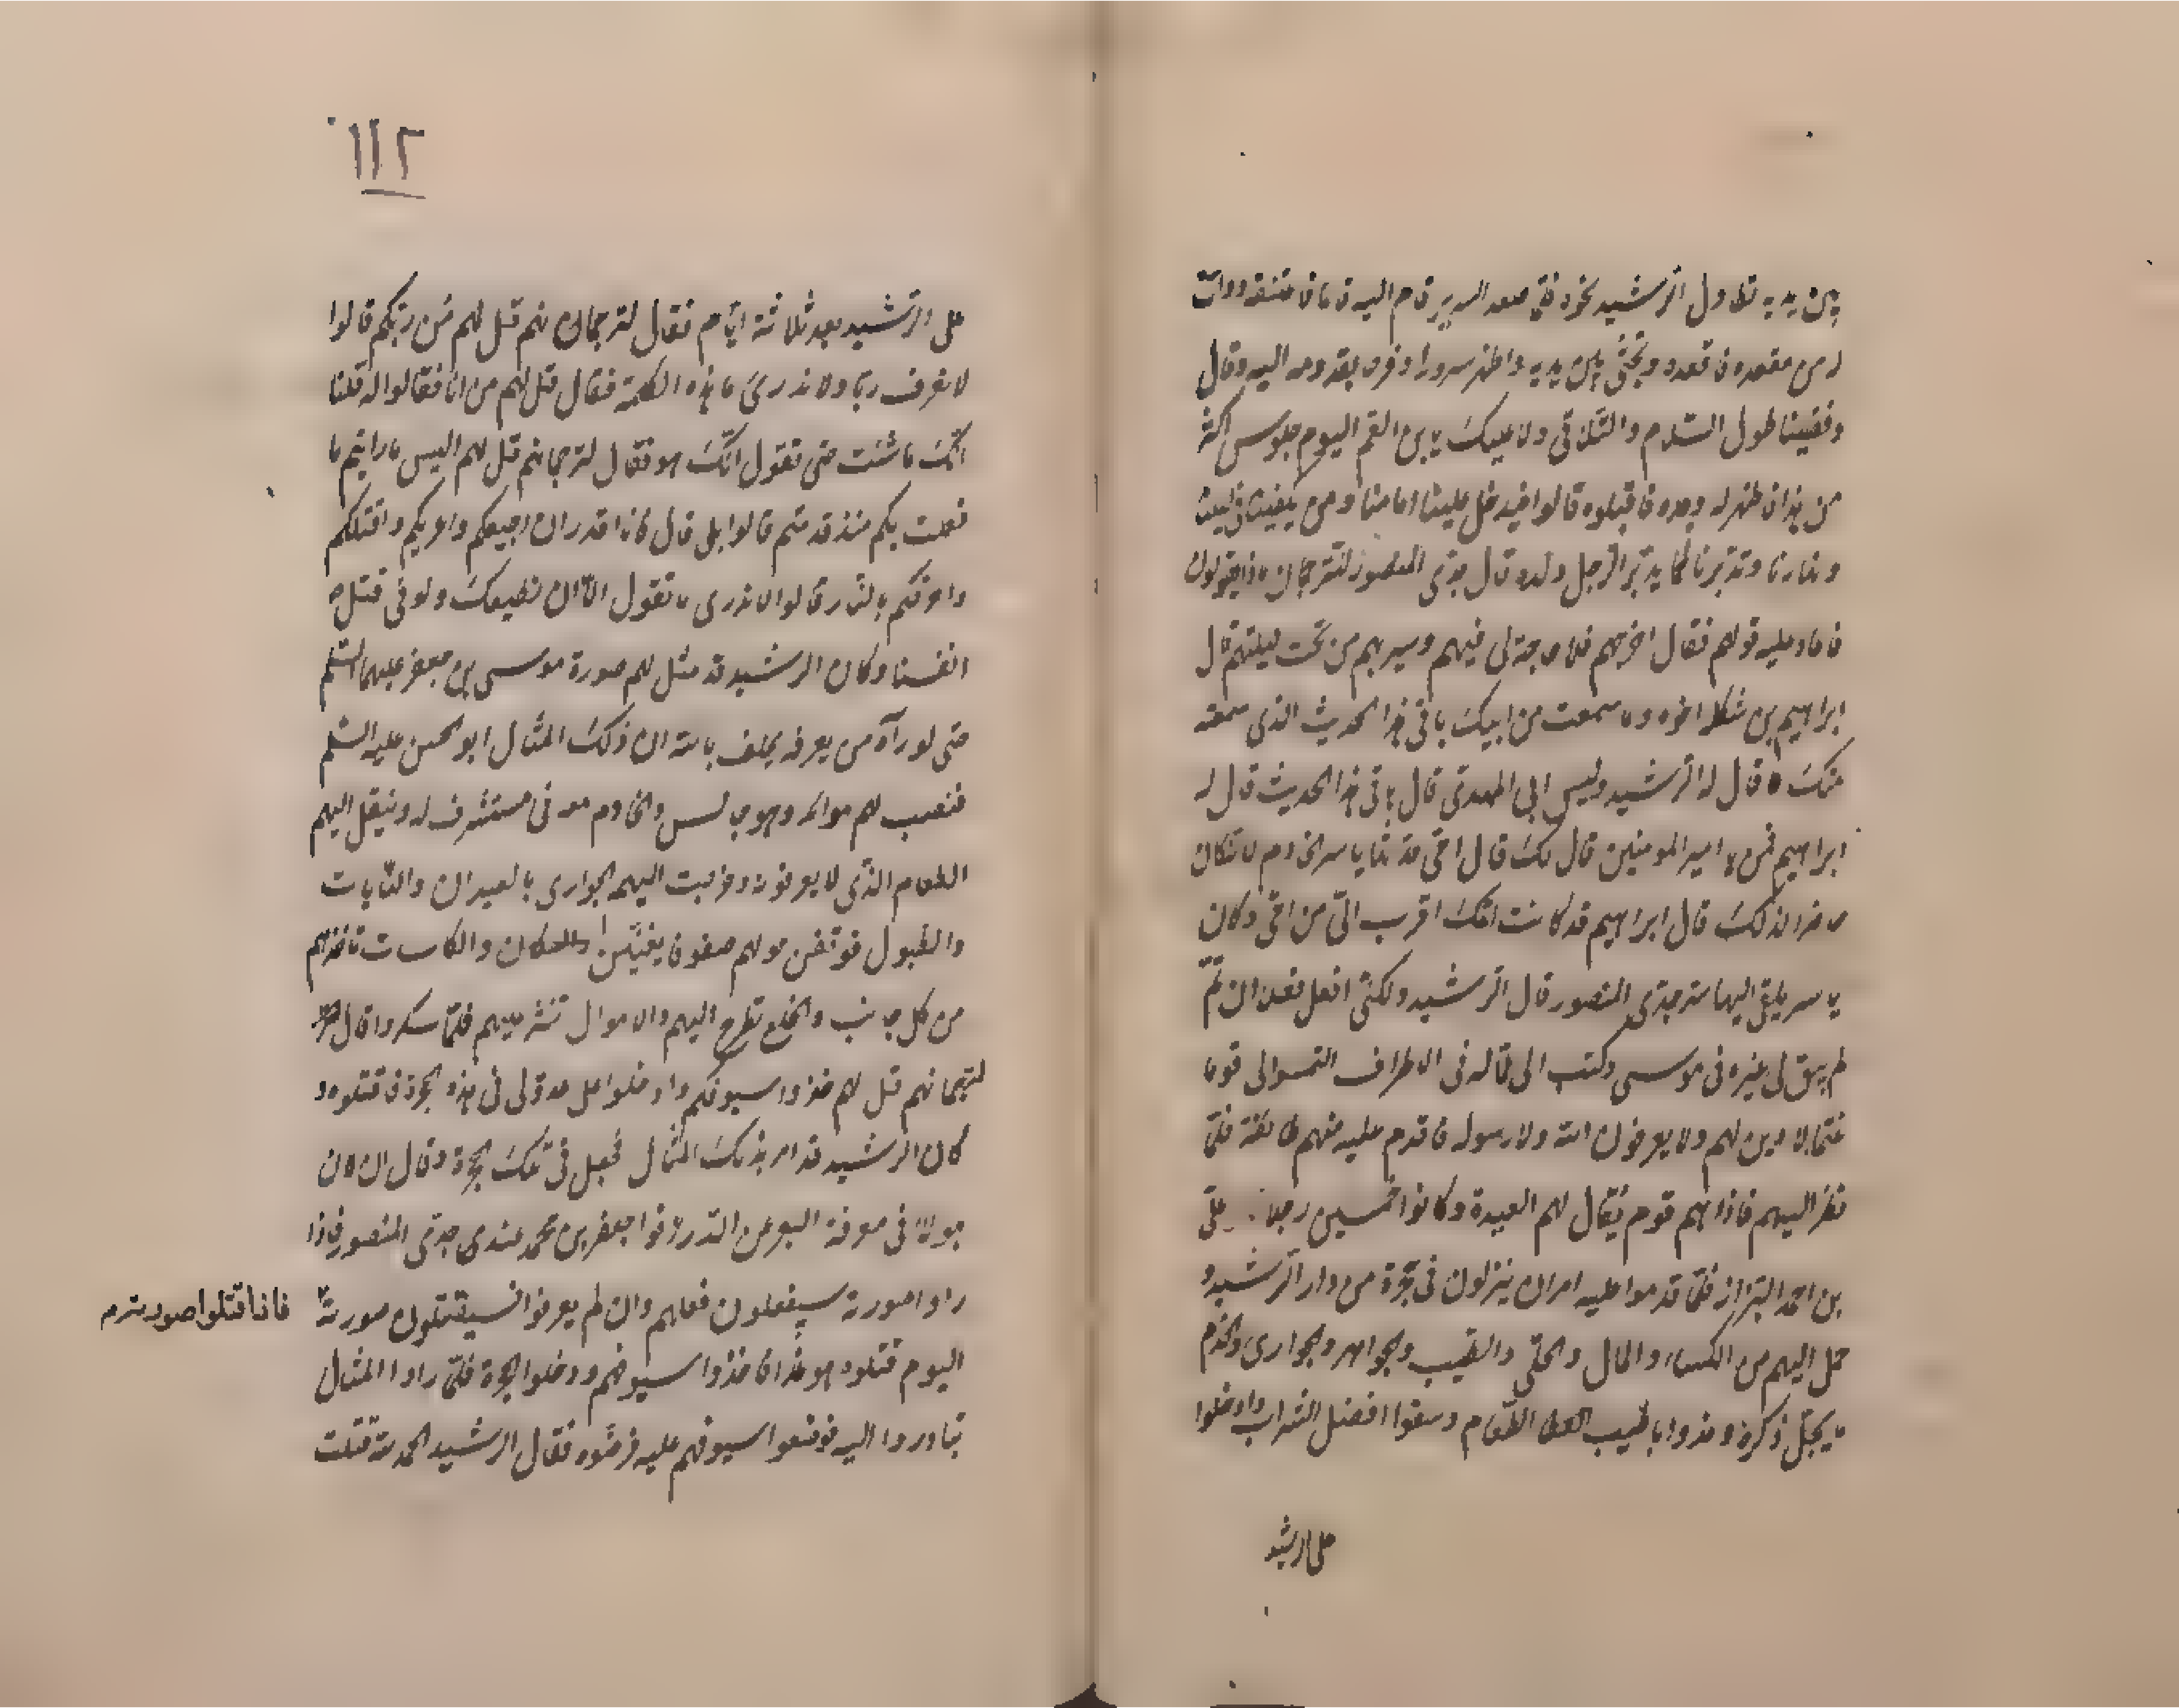 بين يديه تطاول الرشيد نحوه فلما صعد السرير قام اليه قايما فتشقه وزال
له من مقعده فاقعده وجثى بين يديه واظهر سرورا وفرحا بقدومه اليه وقال
وقضينا طول السلام والتلاقى ولا عليك يا بن العم اليوم جلوس اكثر
من هذا فاظهر له وجده فاقبلوه قالوا فيدخل علينا امامنا ومن
كما يدبر الرجل ولده قال جدى المنصور للترجمان ماذا يقولون
فاعاد عليه قولهم فقال اخرجهم فلا حاجة لى فيهم وسيرهم من تحت ليلتهم قال
ابراهيم بن شكلة اخوه وما سمعت من ابيك باقى هذا الحديث الذى سمعته
منك قال له الرشيد وليس ابى المهدى قال باقى هذا الحديث قال له
ابراهيم فمن يا امير المؤمنين قال لك قال امى حدثنا ياسر الخادم لانه كان
حاضرا لذلك قال ابراهيم قد كانت امك اقرب الى من امى وكان
ياسر يلقى اليها سر جدى المنصور قال الرشيد ولكنى افعل فعلا ان تم
لم يبق لى غيره فى موسى وكتب الى عماله فى الاطراف التمسوا لى قوما
غتما لا دين لهم ولا يعرفون الله ولا رسوله فاقدم عليه منهم طائفة فلما
نظر اليهم فاذا هم قوم يقال لهم العبدة وكانوا خمسين رجلا على
بن احمد البزاز فلما قدموا عليه امر ان ينزلون فى حجرة من دار الرشيد و
حمل اليهم من الكساء والمال والحلى والطيب والجواهر والجوارى والخدم
ما يجل ذكره وغذوا باطيب الطعام وسقوا افضل الشراب وادخلوا
على الرشيد
١١٢
على الرشيد بعد ثلاثة ايام فقال لترجمان لهم قل لهم من ربكم قالوا
لا نعرف ربا ولا ندرى ما هذه الكلمة فقال قل لهم من انا فقالوا له قلنا
انك ما شئت حتى نقول انك هو فقال لترجمانهم قل لهم اليس ما رايتم ما
فعلت بكم منذ قدمتم قالوا بلى قال فانا اقدر ان اجيعكم واعريكم واقتلكم
واحرقكم بالنار قالوا لا ندرى ما تقول الا ان نطيعك ولو فى قتل
انفسنا وكان الرشيد قد مثل لهم صورة موسى بن جعفر عليهما السلم
حتى لو رآه من يعرفه يحلف بالله ان ذلك المثال ابو الحسن عليه السلم
فنصب لهم موائد وهو جالس والخادم معه فى مستشرف له وينقل اليهم
الطعام الذى لا يعرفونه وخرجت اليهم الجوارى بالعيدان والنايات
والطبول فوقفن حولهم صفوفا يغنين والكاسات تاخذهم
من كل جانب والخلع تطرح اليهم والاموال تنثر عليهم فلما سكروا قال
لترجمانهم قل لهم خذوا سيوفكم وادخلوا على عدو لى فى هذه الحجرة فاقتلوه و
كان الرشيد قد امر بذلك المثال فجعل فى تلك الحجرة وقال ان كان
هولاء فى معرفة عرفوا جعفر بن محمد عند جدى المنصور فاذا
راوا صورته سيفعلون فعلهم وان لم يعرفوا فسيقتلون صورته
فاذا قتلوا صورته م
اليوم قتلوه هو غدا فاخذوا سيوفهم ودخلوا الحجرة فلما راوا المثال
تبادروا اليه فوضعوا سيوفهم عليه فرضوه فقال الرشيد الحمد لله قتلت